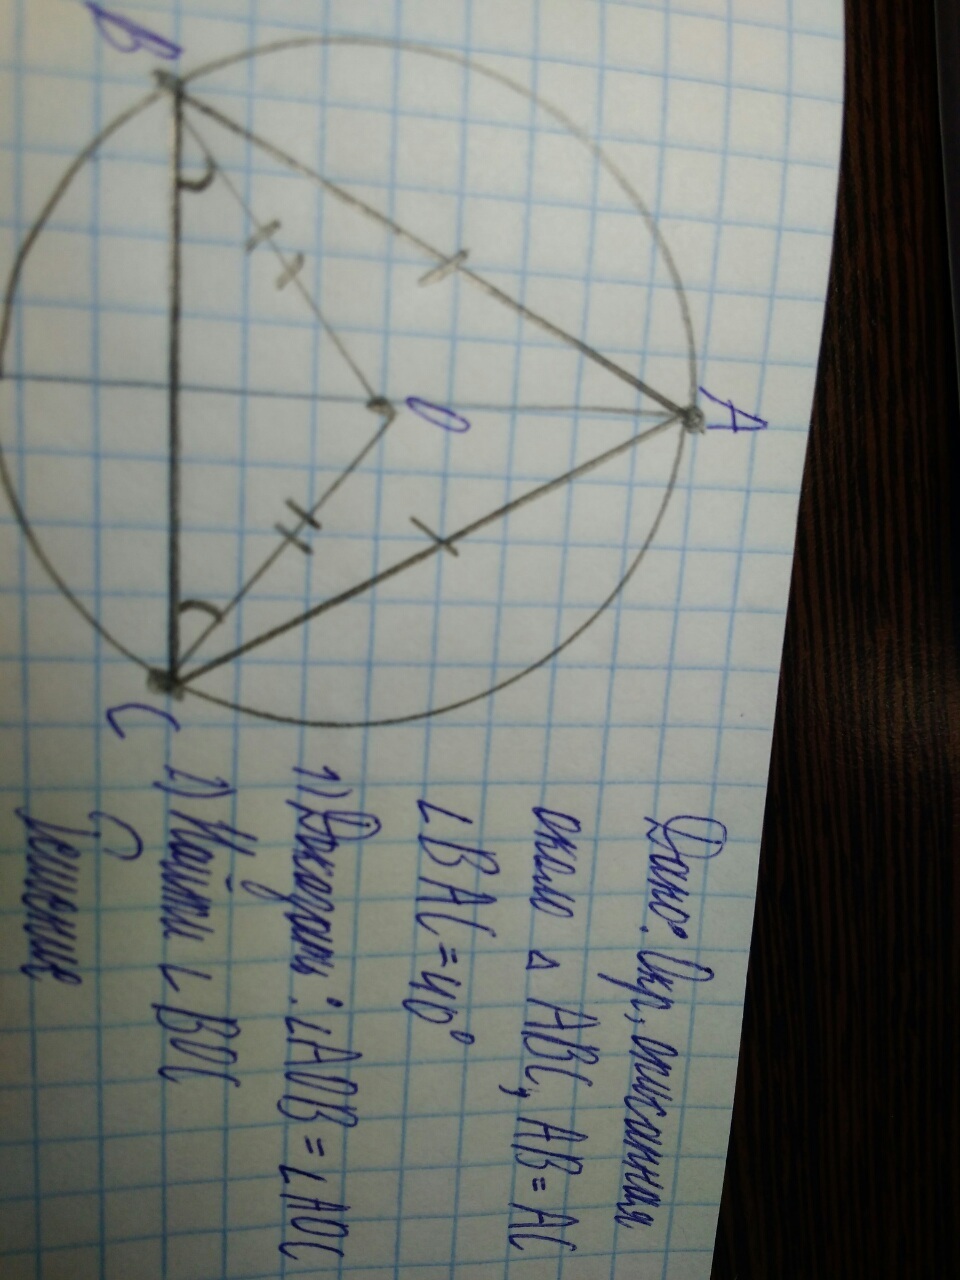 B
A
O
C
Дано: Окр, описанная
около △ ABC, AB = AC
∠BAC = 40°
1) Доказать: ∠AOB = ∠AOC
2) Найти ∠BOC
Решение